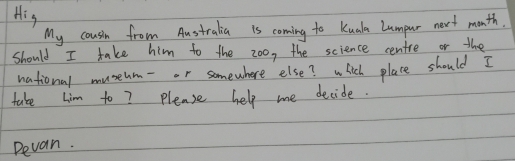 Hi,
My cousin from Australia is coming to Kuala Lumpur next month.
Should I take him to the zoo, the science centre or the
national museum - or somewhere else? which place should I
take him to? Please help me decide.
Devan.